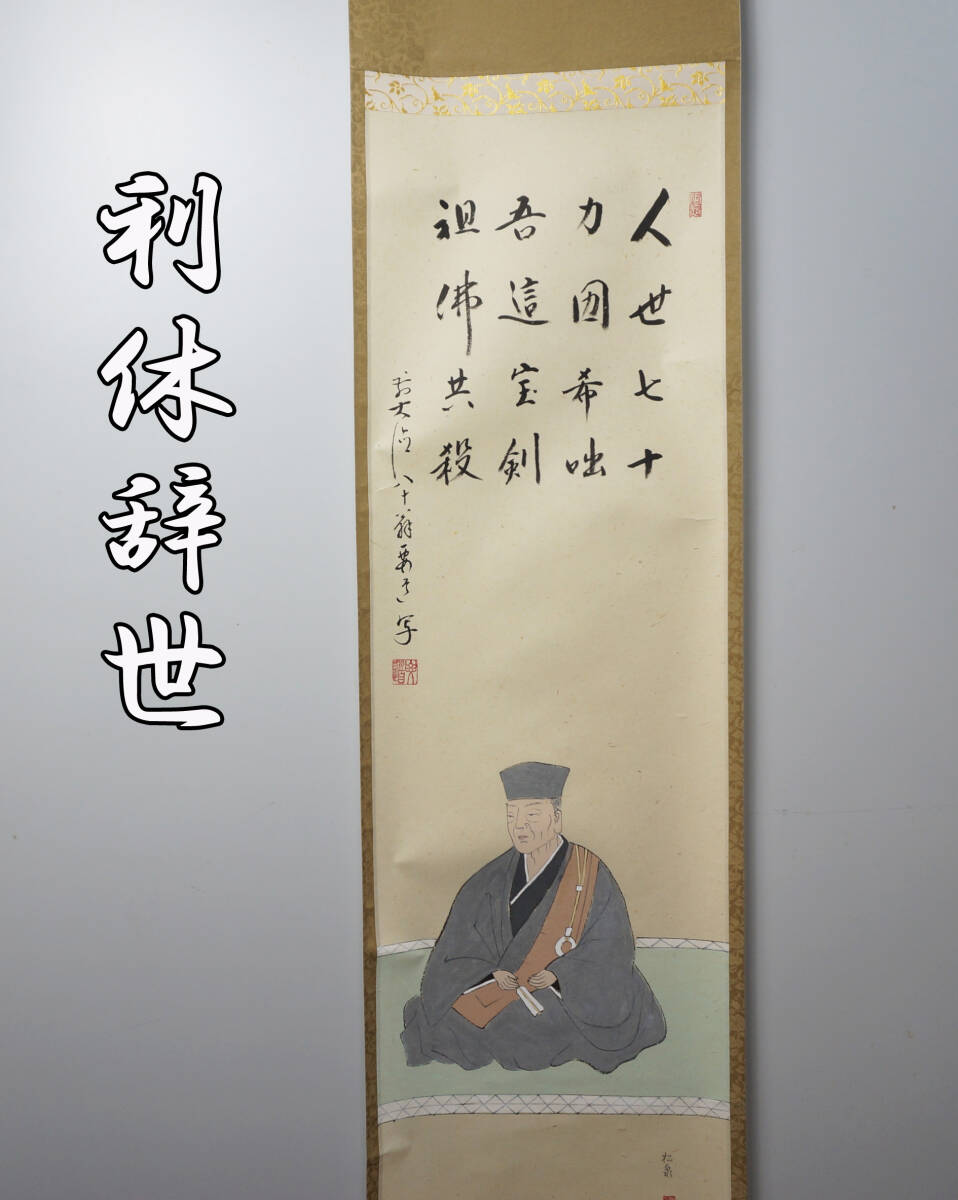 利休辞世
人世七十
力囲希咄
吾這宝剣
祖佛共殺
前大德八十翁要道写
松泉